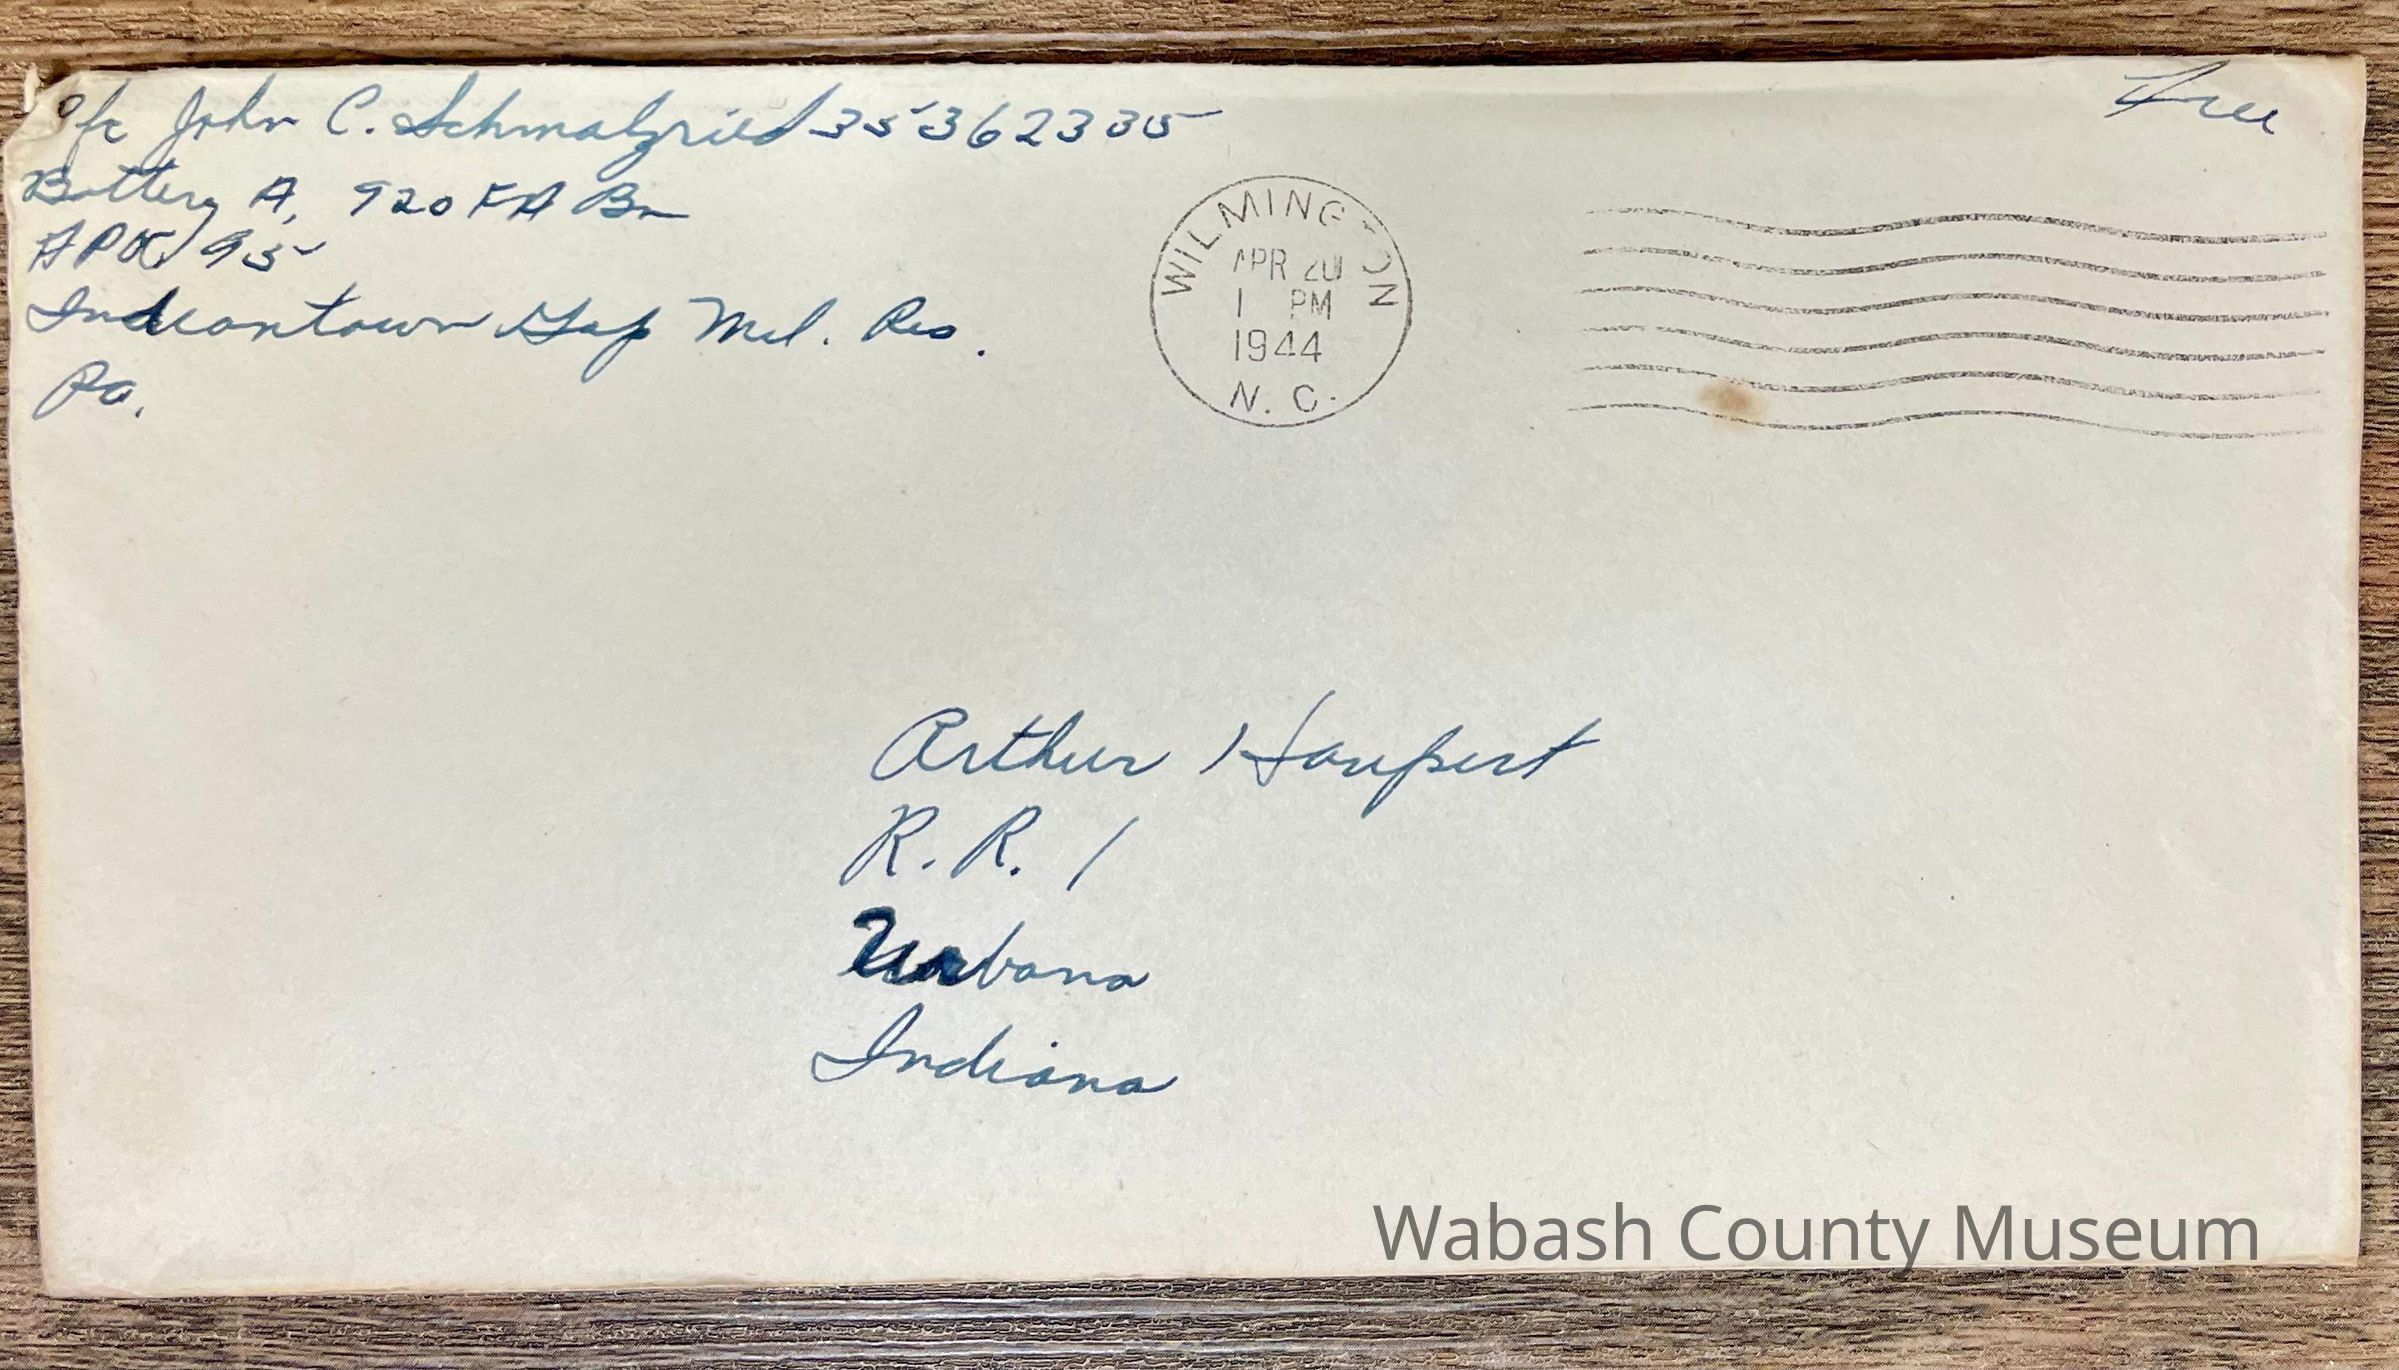 Pfc John C. Schmalzried 35362335
Free
Battery A, 920 FA Bn
APO 95
Indiantown Gap Mil. Res.
Pa.
WILMINGTON
APR 20
1 PM
1944
N. C.
Arthur Haupert
R. R. 1
Urbana
Indiana
Wabash County Museum